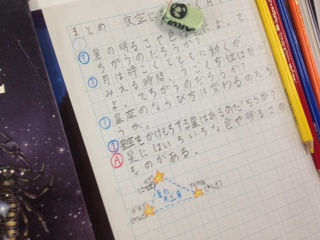 まとめ 夜空に
? 星の明るさや色によって
ちがうのだろうか?
? 月は時こくとともに動くが
みえる時間、うごく方位は月に
よってちがうのだろうか?
? 星座のならび方は変わるのだろ
うか。
をかけもちする星はあるのだろうか?
A 星にはいろいろな色や明るさの
ものがある。
夏の
大三角